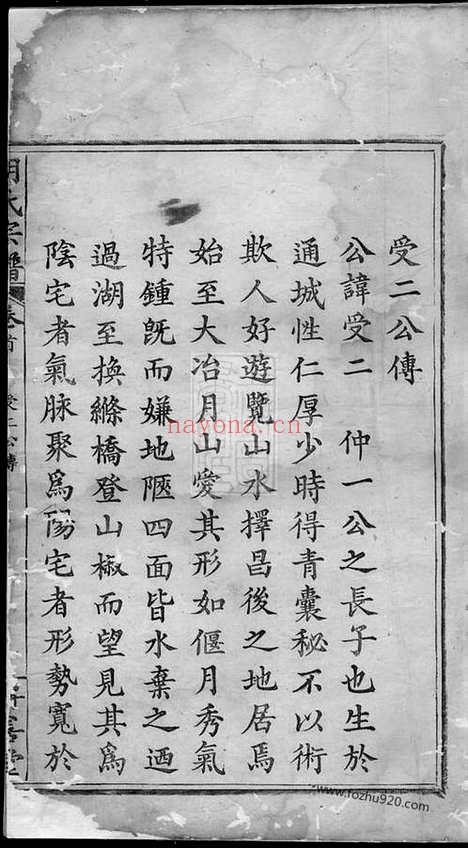 受二公傳
公諱受二　仲一公之長子也生於
通城性仁厚少時得青囊秘不以術
欺人好遊覽山水擇昌後之地居焉
始至大冶月山愛其形如偃月秀氣
特鍾旣而嫌地陿四面皆水棄之迺
過湖至換縧橋登山椒而望見其爲
陰宅者氣脉聚爲陽宅者形勢寬於
氏宗譜 卷首 受二公傳
nayona.cn
www.fozhu920.com